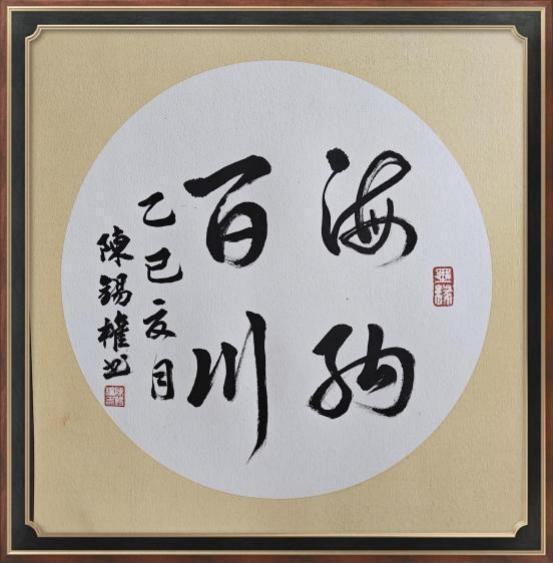 海納
百川
乙巳亥月
陳錫權书